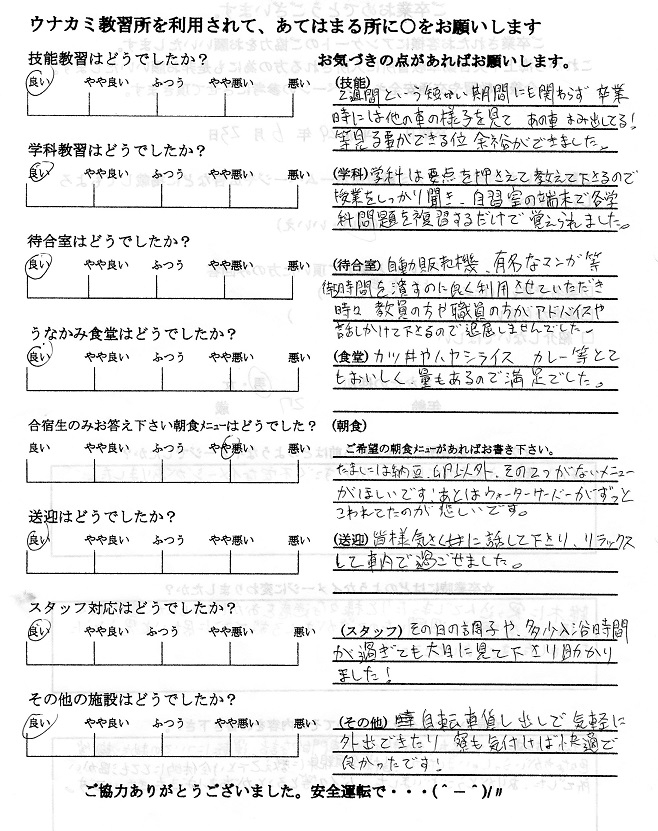 ウナカミ教習所を利用されて、あてはまる所に○をお願いします
技能教習はどうでしたか？
お気づきの点があればお願いします。
良い やや良い ふつう やや悪い 悪い
(技能)
2週間という短かい期間にも関わらず 卒業
時には他の車の様子を見て あの車 はみ出してる!
等見る事ができる位 余裕ができました。
学科教習はどうでしたか？
良い やや良い ふつう やや悪い 悪い
(学科)学科は要点を押さえて教えて下さるので
授業をしっかり聞き、自習室の端末で各学
科問題を複習するだけで覚えられました。
待合室はどうでしたか？
良い やや良い ふつう やや悪い 悪い
(待合室)自動販売機、有名なマンガ等
時間を潰すのに良く利用させていただき
時々教員の方や職員の方がアドバイスや
話しかけて下さるので退屈しませんでした。
うなかみ食堂はどうでしたか？
良い やや良い ふつう やや悪い 悪い
(食堂)カツ丼やハヤシライス カレー等とて
もおいしく、量もあるので満足でした。
合宿生のみお答え下さい朝食ﾒﾆｭｰはどうでしたか？
(朝食)
良い やや良い ふつう やや悪い 悪い
ご希望の朝食ﾒﾆｭｰがあればお書き下さい。
たまには納豆、卵以外、その2つがないメニュー
がほしいです!あとはウォーターサーバーがずっと
こわれてたのが悲しいです。
送迎はどうでしたか？
良い やや良い ふつう やや悪い 悪い
(送迎)皆様気さくに話して下さり、リラックス
して車内で過ごせました。
スタッフ対応はどうでしたか？
良い やや良い ふつう やや悪い 悪い
(スタッフ)その日の調子や、多少入浴時間
が過ぎても大目に見て下さり助かり
ました!
その他の施設はどうでしたか？
良い やや良い ふつう やや悪い 悪い
(その他)自転車貸し出しで気軽に
外出できたり 寮も気付けば快適で
良かったです!
ご協力ありがとうございました。安全運転で・・・(＾－＾)/〃